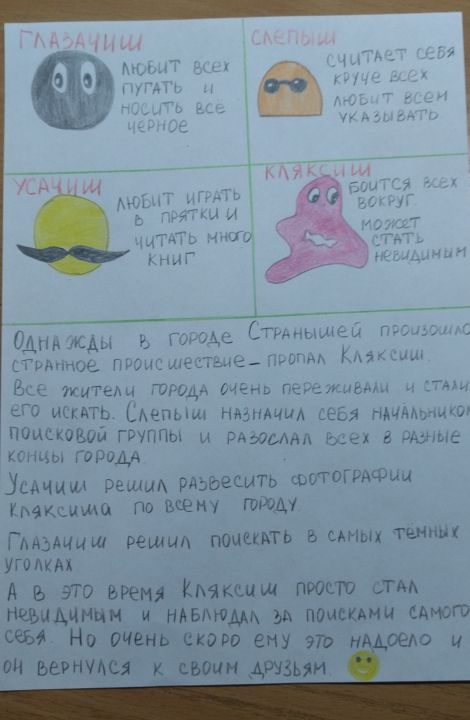 ГЛАЗАЧИШ
ЛЮБИТ ВСЕХ
ПУГАТЬ И
НОСИТЬ ВСЕ
ЧЕРНОЕ
СЛЕПЫШ
СЧИТАЕТ СЕБЯ
КРУЧЕ ВСЕХ
ЛЮБИТ ВСЕМ
УКАЗЫВАТЬ
УСАЧИШ
ЛЮБИТ ИГРАТЬ
В ПРЯТКИ И
ЧИТАТЬ МНОГО
КНИГ
КЛЯКСИШ
БОИТСЯ ВСЕХ
ВОКРУГ
МОЖЕТ
СТАТЬ
НЕВИДИМЫМ
ОДНАЖДЫ В ГОРОДЕ СТРАНЫШЕЙ ПРОИЗОШЛО
СТРАННОЕ ПРОИСШЕСТВИЕ – ПРОПАЛ КЛЯКСИШ.
ВСЕ ЖИТЕЛИ ГОРОДА ОЧЕНЬ ПЕРЕЖИВАЛИ И СТАЛИ
ЕГО ИСКАТЬ. СЛЕПЫШ НАЗНАЧИЛ СЕБЯ НАЧАЛЬНИКОМ
ПОИСКОВОЙ ГРУППЫ И РАЗОСЛАЛ ВСЕХ В РАЗНЫЕ
КОНЦЫ ГОРОДА.
УСАЧИШ РЕШИЛ РАЗВЕСИТЬ ФОТОГРАФИИ
КЛЯКСИША ПО ВСЕМУ ГОРОДУ.
ГЛАЗАЧИШ РЕШИЛ ПОИСКАТЬ В САМЫХ ТЁМНЫХ
УГОЛКАХ
А В ЭТО ВРЕМЯ КЛЯКСИШ ПРОСТО СТАЛ
НЕВИДИМЫМ И НАБЛЮДАЛ ЗА ПОИСКАМИ САМОГО
СЕБЯ. НО ОЧЕНЬ СКОРО ЕМУ ЭТО НАДОЕЛО И
ОН ВЕРНУЛСЯ К СВОИМ ДРУЗЬЯМ.